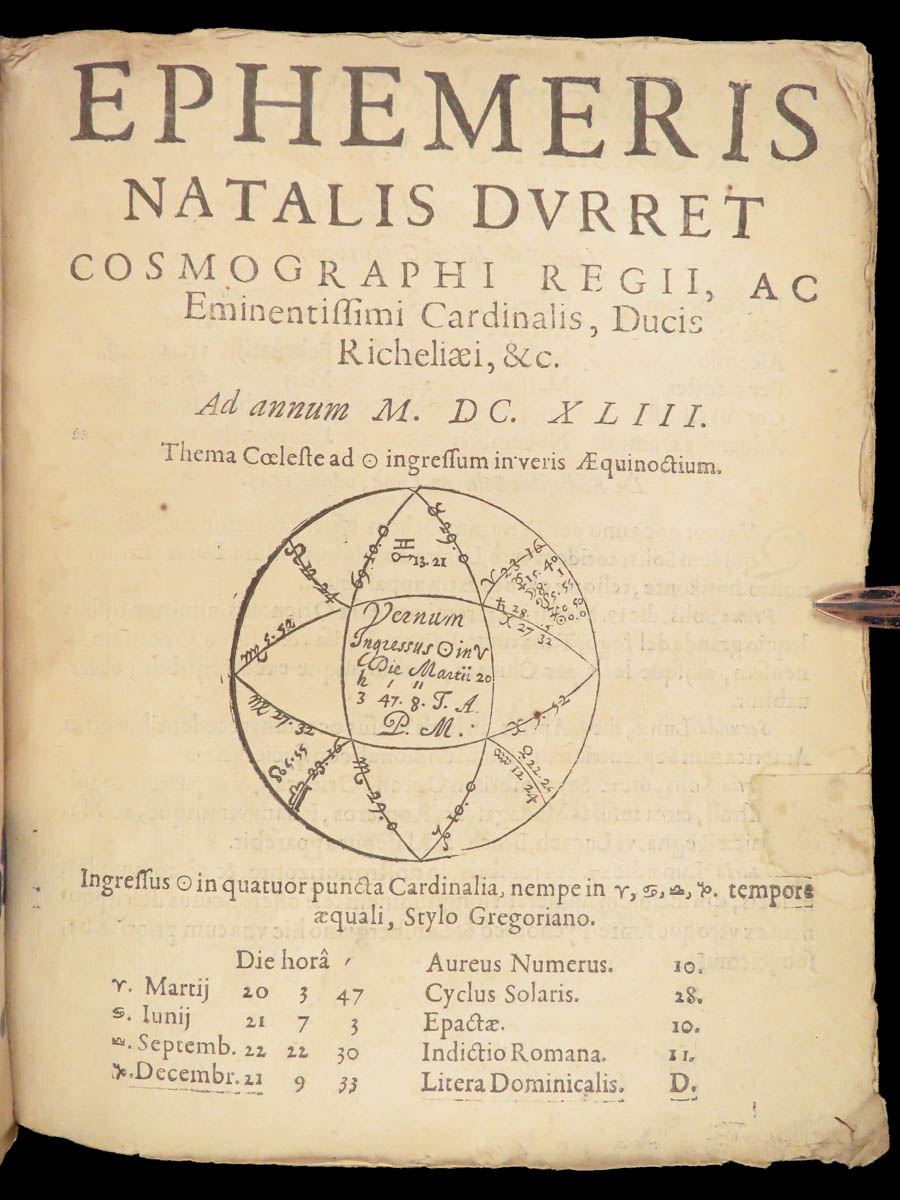 EPHEMERIS
NATALIS DVRRET
COSMOGRAPHI REGII, AC
Eminentiſſimi Cardinalis, Ducis
Richeliæi, &c.
Ad annum M. DC. XLIII.
Thema Cœleſte ad ☉ ingreſſum in veris Æquinoctium.
♉ 29.0
♋ 10.0
13.21
♌ 12 24
♈ 23-16
♄ 28.
♓ 27 32
♍ 5.52
Vernum
Ingreſſus ☉ in ♈
Die Martii 20
h ′ ″
3 47. 8. T. A.
P. M.
♍ 27.32
♓ 5.52
☊ 5.55
♎ 23.16
♏ 29.0
♑ 10.0
♀ 22.
♒ 12.24
Ingreſſus ☉ in quatuor puncta Cardinalia, nempe in ♈, ♋, ♎, ♑. tempore
æquali, Stylo Gregoriano.
Die horâ ′
♈. Martij 20 3 47
♋. Iunij 21 7 3
♎. Septemb. 22 22 30
♑. Decembr. 21 9 33
Aureus Numerus. 10.
Cyclus Solaris. 28.
Epactæ. 10.
Indictio Romana. 11.
Litera Dominicalis. D.